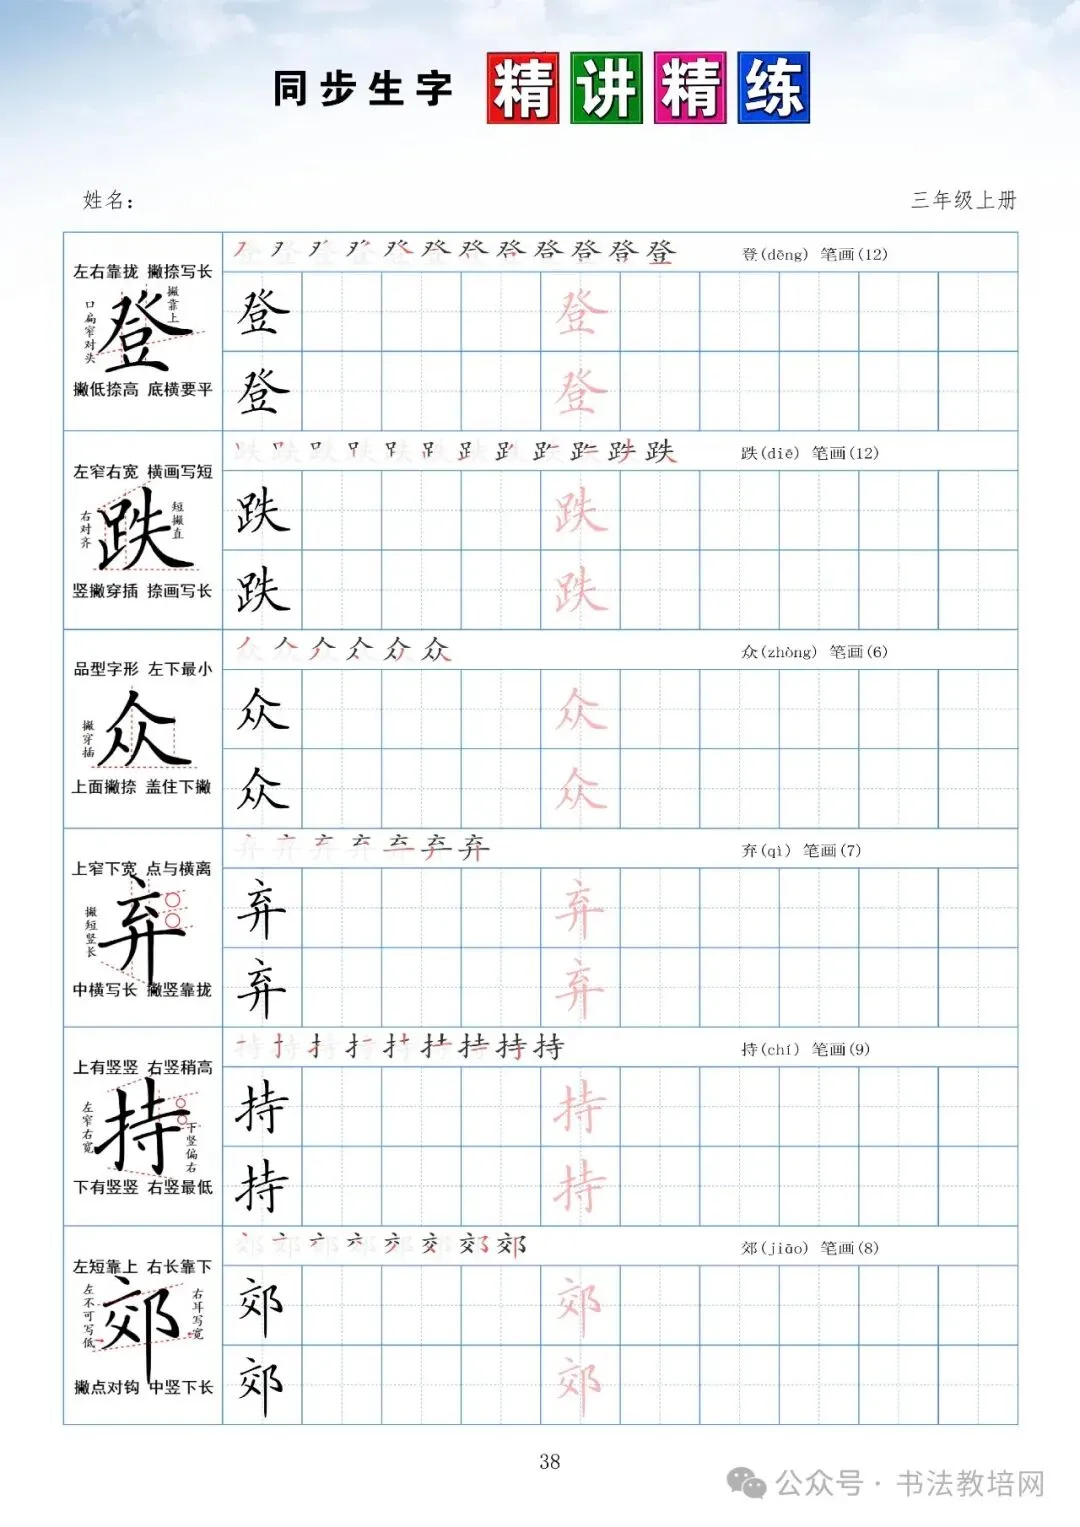 同步生字 精讲精练
姓名： 三年级上册
登(dēng) 笔画(12)
左右靠拢 撇捺写长
口扁窄对头
登
撇靠上
撇低捺高 底横要平
登 登
登 登
跌(diē) 笔画(12)
左窄右宽 横画写短
右对齐
跌
短撇直
竖撇穿插 捺画写长
跌 跌
跌 跌
众(zhòng) 笔画(6)
品型字形 左下最小
撇穿插
众
上面撇捺 盖住下撇
众 众
众 众
弃(qì) 笔画(7)
上窄下宽 点与横离
撇短竖长
弃
中横写长 撇竖靠拢
弃 弃
弃 弃
持(chí) 笔画(9)
上有竖竖 右竖稍高
左窄右宽
持
下竖偏右
下有竖竖 右竖最低
持 持
持 持
郊(jiāo) 笔画(8)
左短靠上 右长靠下
左不可写低
郊
右耳写宽
撇点对钩 中竖下长
郊 郊
郊 郊
38
公众号·书法教培网